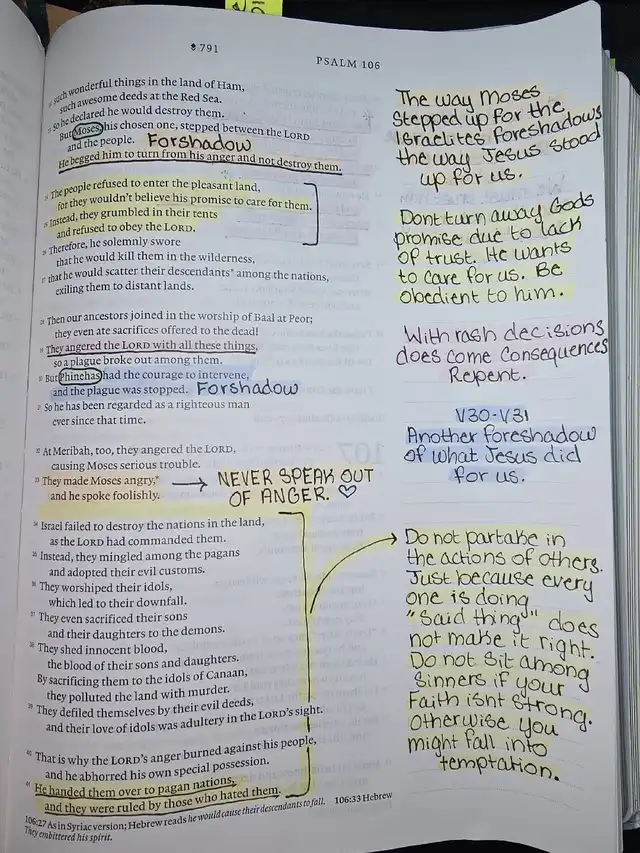 791
PSALM 106
22 such wonderful things in the land of Ham,
such awesome deeds at the Red Sea.
23 So he declared he would destroy them.
But Moses, his chosen one, stepped between the LORD
and the people. Forshadow
He begged him to turn from his anger and not destroy them.
24 The people refused to enter the pleasant land,
for they wouldn't believe his promise to care for them.
25 Instead, they grumbled in their tents
and refused to obey the LORD.
26 Therefore, he solemnly swore
that he would kill them in the wilderness,
27 that he would scatter their descendants* among the nations,
exiling them to distant lands.
28 Then our ancestors joined in the worship of Baal at Peor;
they even ate sacrifices offered to the dead!
29 They angered the LORD with all these things,
so a plague broke out among them.
30 But Phinehas had the courage to intervene,
and the plague was stopped. Forshadow
31 So he has been regarded as a righteous man
ever since that time.
32 At Meribah, too, they angered the LORD,
causing Moses serious trouble.
33 They made Moses angry,*
and he spoke foolishly.
NEVER SPEAK OUT
OF ANGER. ♡
34 Israel failed to destroy the nations in the land,
as the LORD had commanded them.
35 Instead, they mingled among the pagans
and adopted their evil customs.
36 They worshiped their idols,
which led to their downfall.
37 They even sacrificed their sons
and their daughters to the demons.
38 They shed innocent blood,
the blood of their sons and daughters.
By sacrificing them to the idols of Canaan,
they polluted the land with murder.
39 They defiled themselves by their evil deeds,
and their love of idols was adultery in the LORD's sight.
40 That is why the LORD's anger burned against his people,
and he abhorred his own special possession.
41 He handed them over to pagan nations,
and they were ruled by those who hated them.
106:27 As in Syriac version; Hebrew reads he would cause their descendants to fall. 106:33 Hebrew
They embittered his spirit.
The way Moses
Stepped up for the
Israelites foreshadows
the way Jesus stood
up for us.
Dont turn away Gods
promise due to lack
of trust. He wants
to care for us. Be
obedient to him.
With rash decisions
does come consequences
Repent.
V30-V31
Another foreshadow
of what Jesus did
for us.
Do not partake in
the actions of others.
Just because every
one is doing
"Said thing" does
not make it right.
Do not Sit among
Sinners if your
Faith isnt Strong.
Otherwise you
might fall into
temptation.